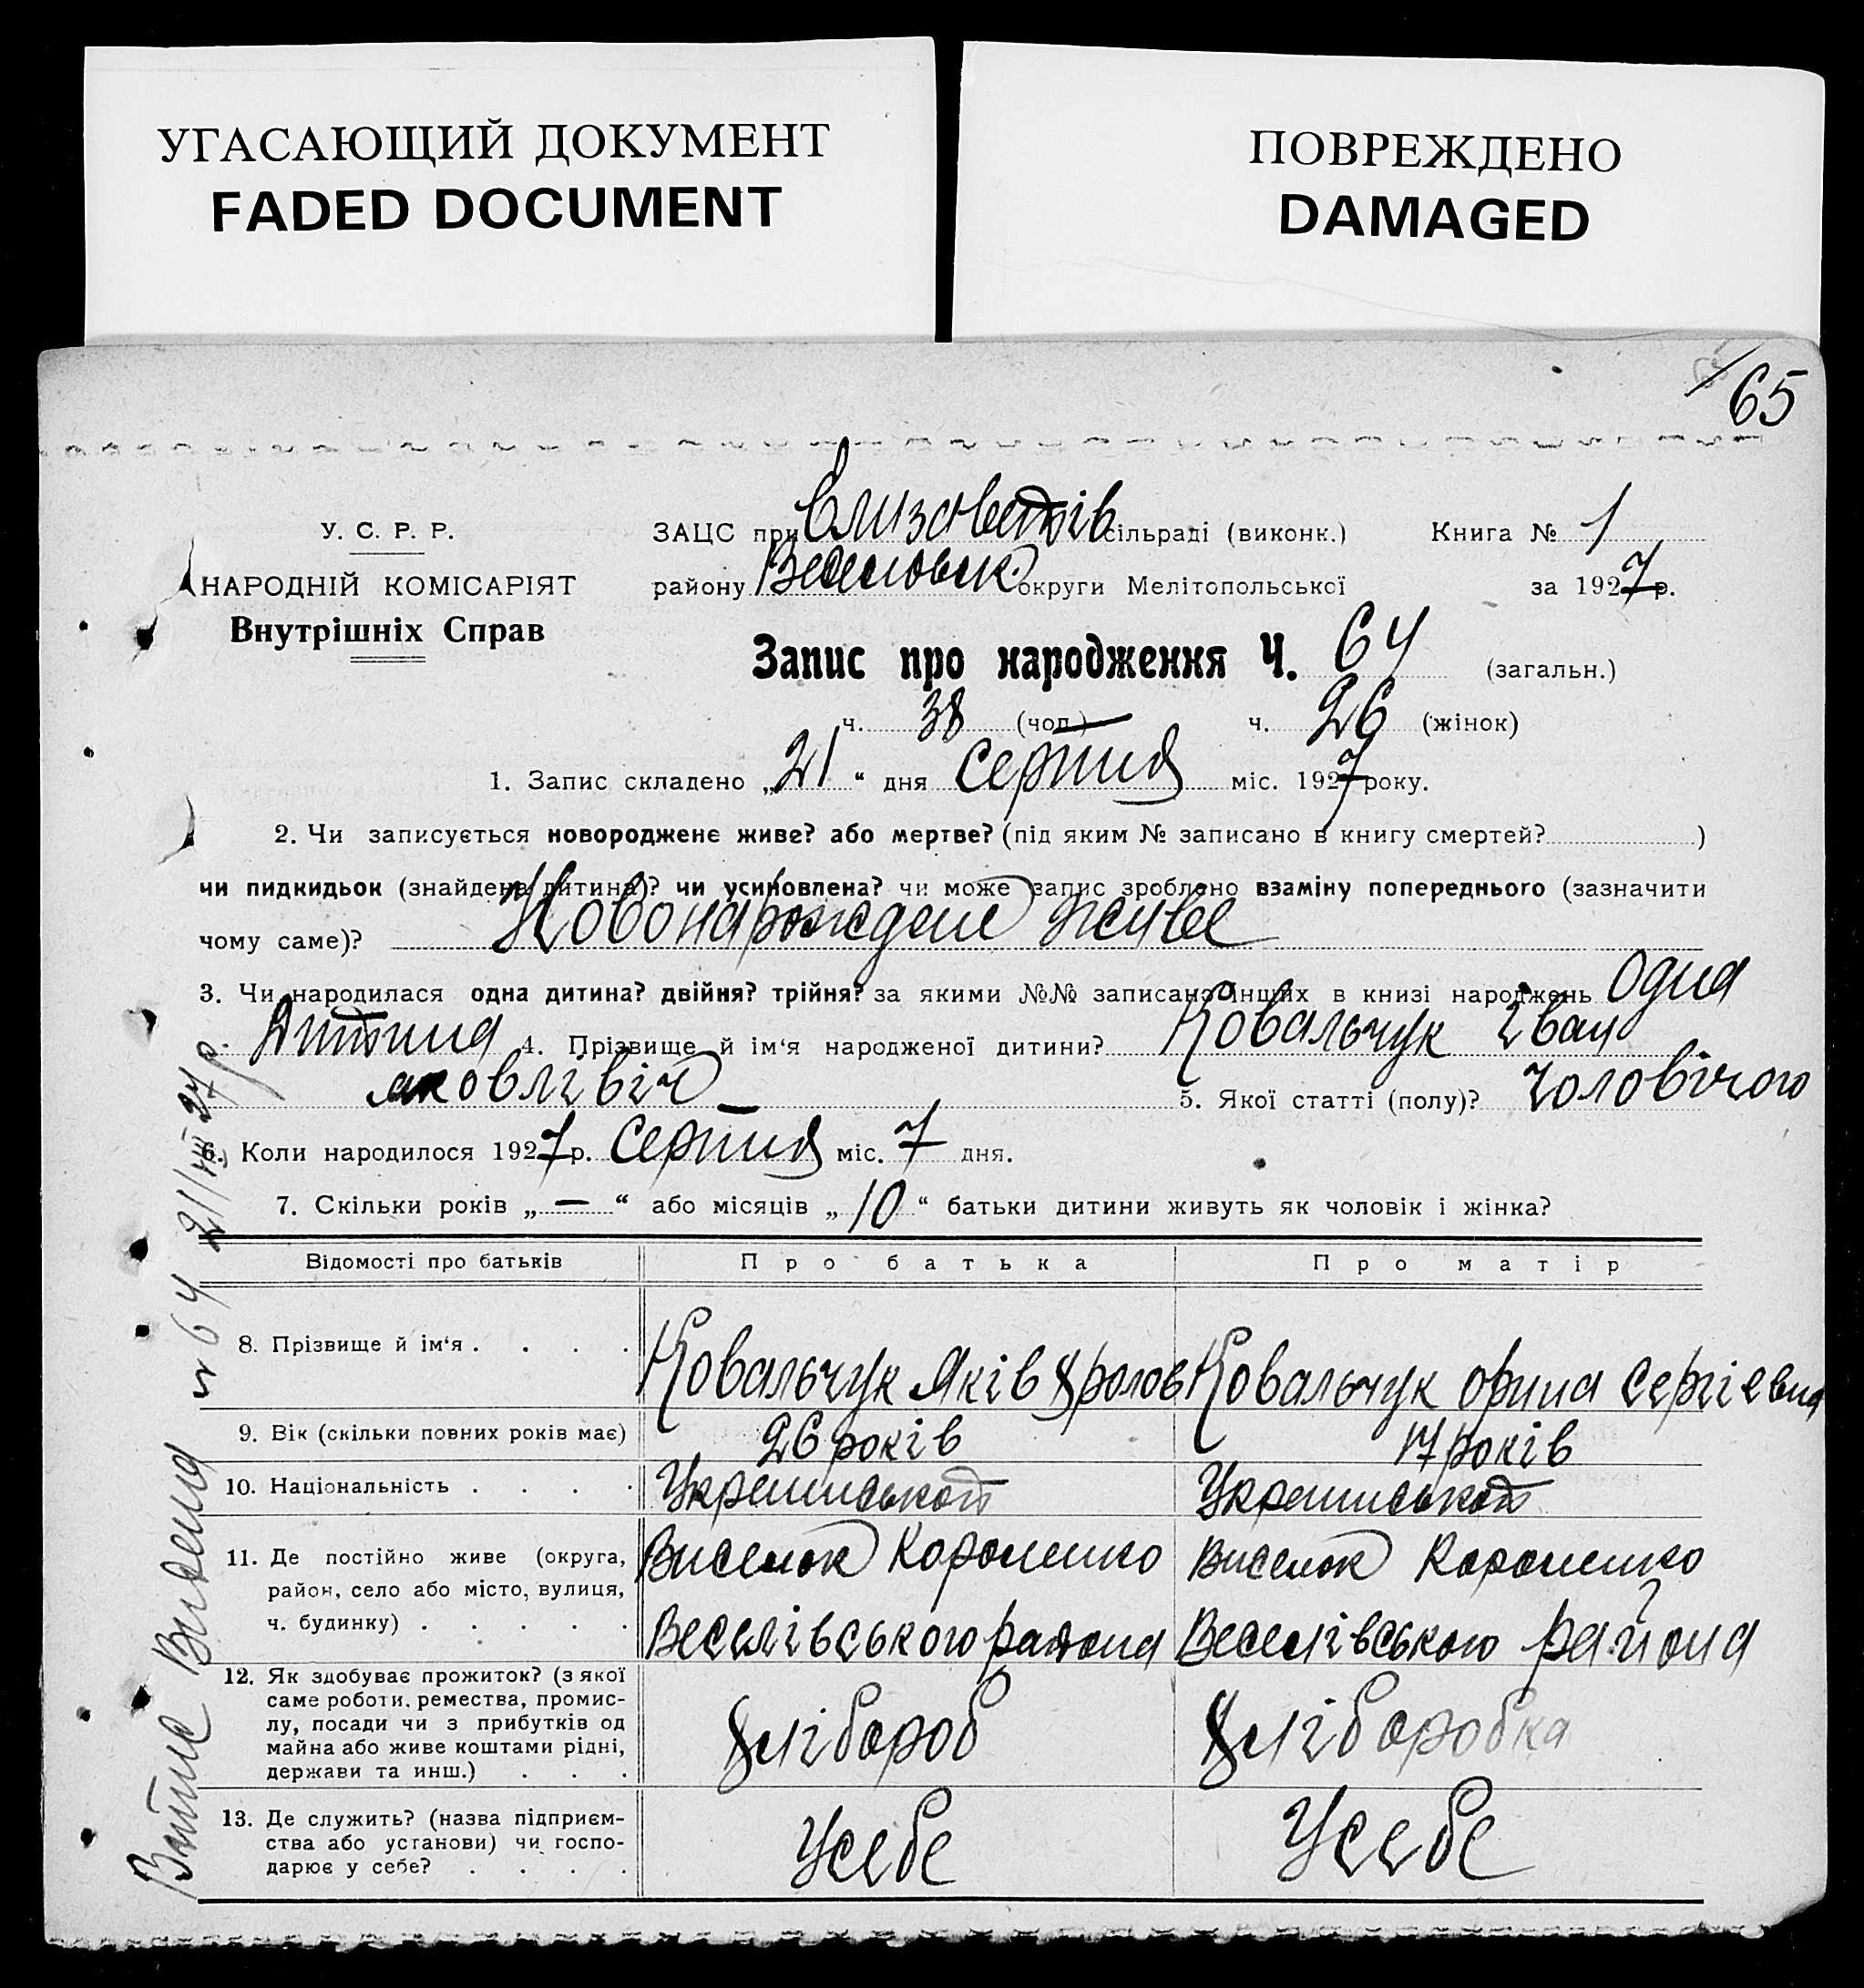 УГАСАЮЩИЙ ДОКУМЕНТ
FADED DOCUMENT
ПОВРЕЖДЕНО
DAMAGED
65
У. С. Р. Р.
НАРОДНІЙ КОМІСАРІЯТ
Внутрішніх Справ
ЗАЦС при Єлизоветів сільраді (виконк.) Книга № 1
району Веселовск. округи Мелітопольської за 1927 р.
Запис про народження Ч. 64 (загальн.)
ч. 38 (чол.) ч. 26 (жінок)
1. Запис складено „21“ дня серпня міс. 1927 року.
2. Чи записується новороджене живе? або мертве? (під яким № записано в книгу смертей? )
чи пидкидьок (знайдена дитина)? чи усиновлена? чи може запис зроблено взаміну попереднього (зазначити
чому саме)? Новонарождене живе
3. Чи народилася одна дитина? двійня? трійня? за якими №№ записано інших в книзі народжень Одна
дитина 4. Прізвище й ім‘я народженої дитини? Ковальчук Іван
яковлівіч 5. Якої статті (полу)? чоловічого
6. Коли народилося 1927 р. серпня міс. 7 дня.
7. Скільки років „—“ або місяців „10“ батьки дитини живуть як чоловік і жінка?
Відомості про батьків Про батька Про матір
8. Прізвище й ім‘я . . . . Ковальчук Яків Хролов Ковальчук орина сергіевна
9. Вік (скільки повних років має) 26 років 17 років
10. Національність . . . .
11. Де постійно живе (округа, Виселок Короленко Виселок Короленко
район, село або місто, вулиця,
ч. будинку) . . . . . Веселівського района Веселівського района
12. Як здобуває прожиток? (з якої
саме роботи, ремества, промис-
лу, посади чи з прибутків од Хлібороб Хліборобка
майна або живе коштами рідні,
держави та инш.) . . .
13. Де служить? (назва підприєм-
ства або установи) чи госпо- Усебе Усебе
дарює у себе? . . . .
Витяг Видана № 64 21/VIII 27 р.